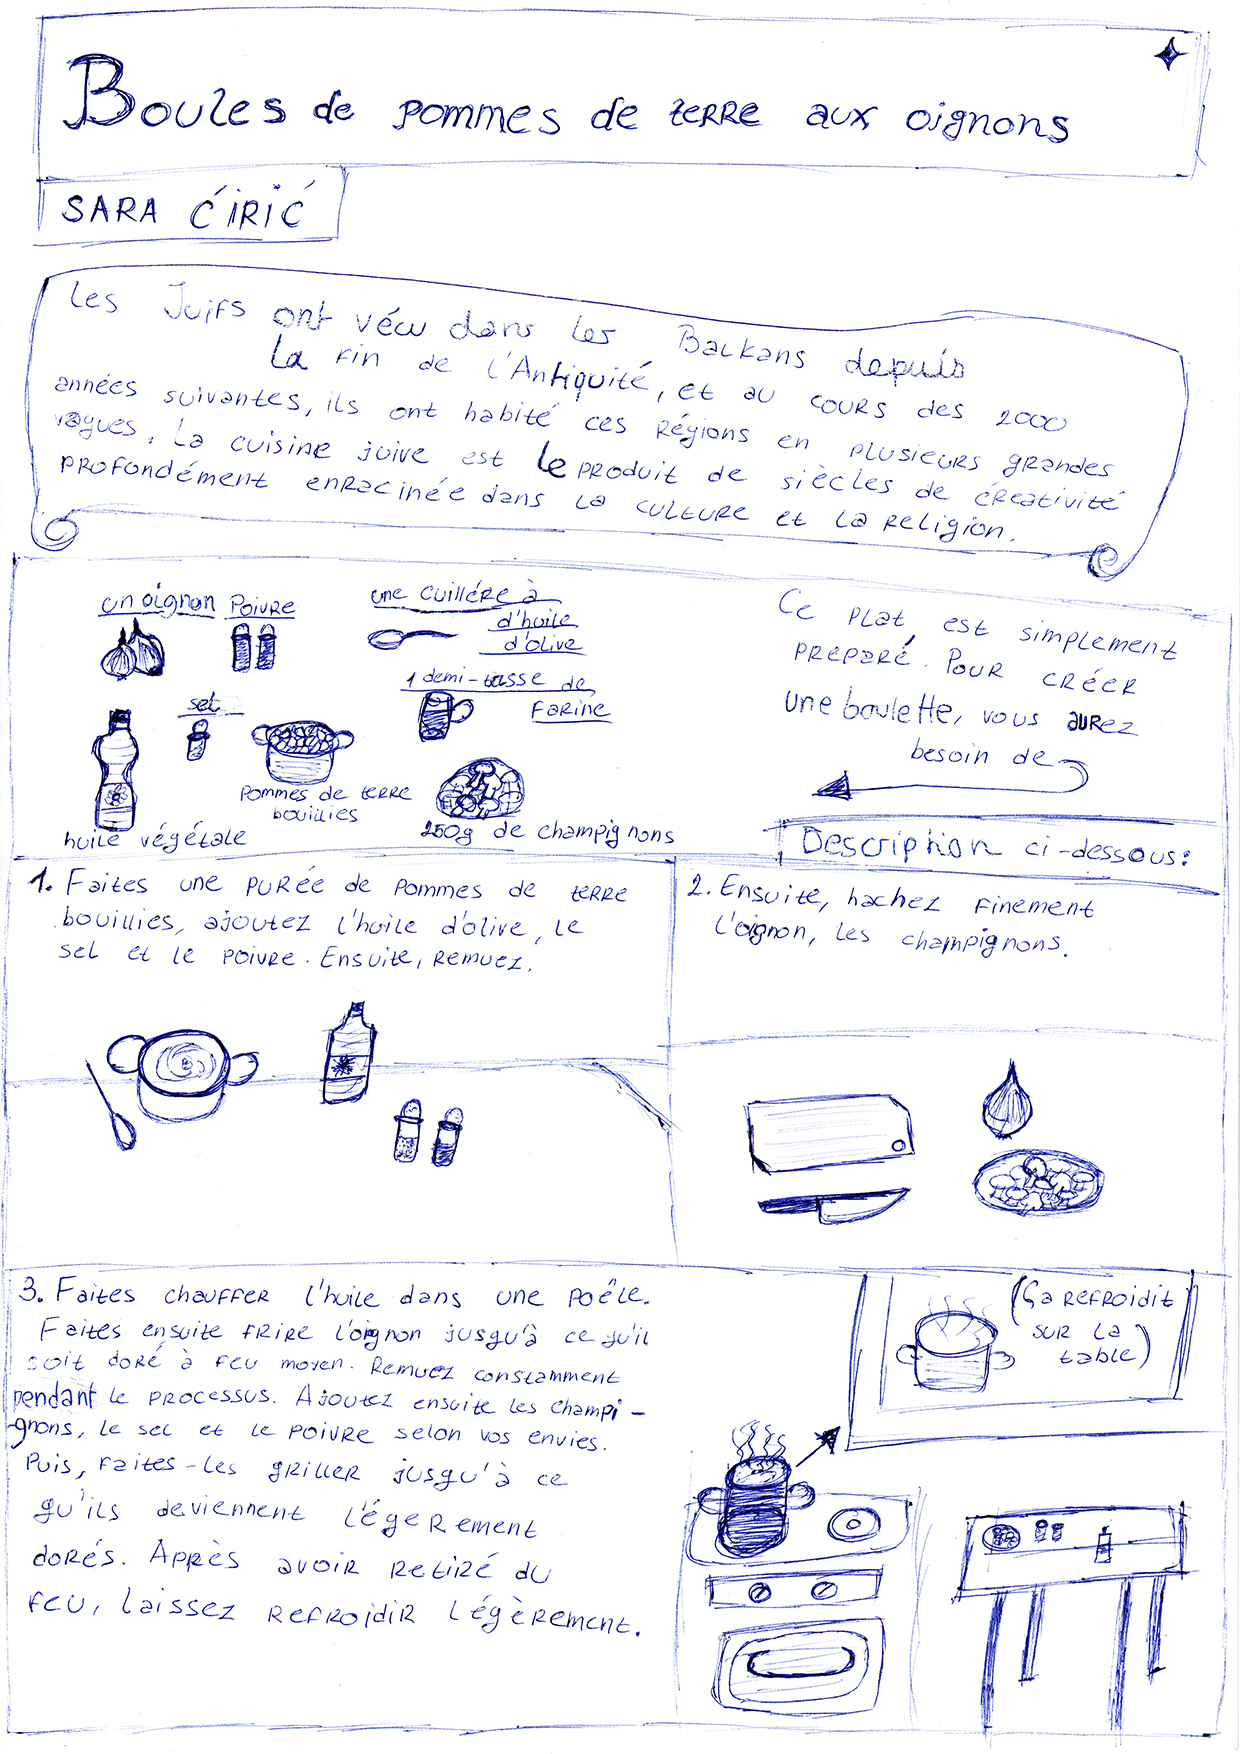 Boules de pommes de terre aux oignons
SARA ĆIRIĆ
Les Juifs ont vécu dans les Balkans depuis
la fin de l'Antiquité, et au cours des 2000
années suivantes, ils ont habité ces régions en plusieurs grandes
vagues. La cuisine juive est le produit de siècles de créativité
profondément enracinée dans la culture et la religion.
un oignon
Poivre
une cuillére à
d'huile
d'olive
sel
1 demi-tasse de
farine
huile végétale
Pommes de terre
bouillies
250g de champignons
Ce plat est simplement
preparé. Pour créer
une boulette, vous aurez
besoin de
Description ci-dessous:
1. Faites une purée de pommes de terre
bouillies, ajoutez l'huile d'olive, le
sel et le poivre. Ensuite, remuez.
2. Ensuite, hachez finement
l'oignon, les champignons.
3. Faites chauffer l'huile dans une poêle.
Faites ensuite frire l'oignon jusqu'à ce qu'il
soit doré à feu moyen. Remuez constamment
pendant le processus. Ajoutez ensuite les champi-
gnons, le sel et le poivre selon vos envies.
Puis, faites-les griller jusqu'à ce
qu'ils deviennent l'égerement
dorés. Après avoir retiré du
feu, laissez refroidir légèrement.
(Ça refroidit
sur la
table)